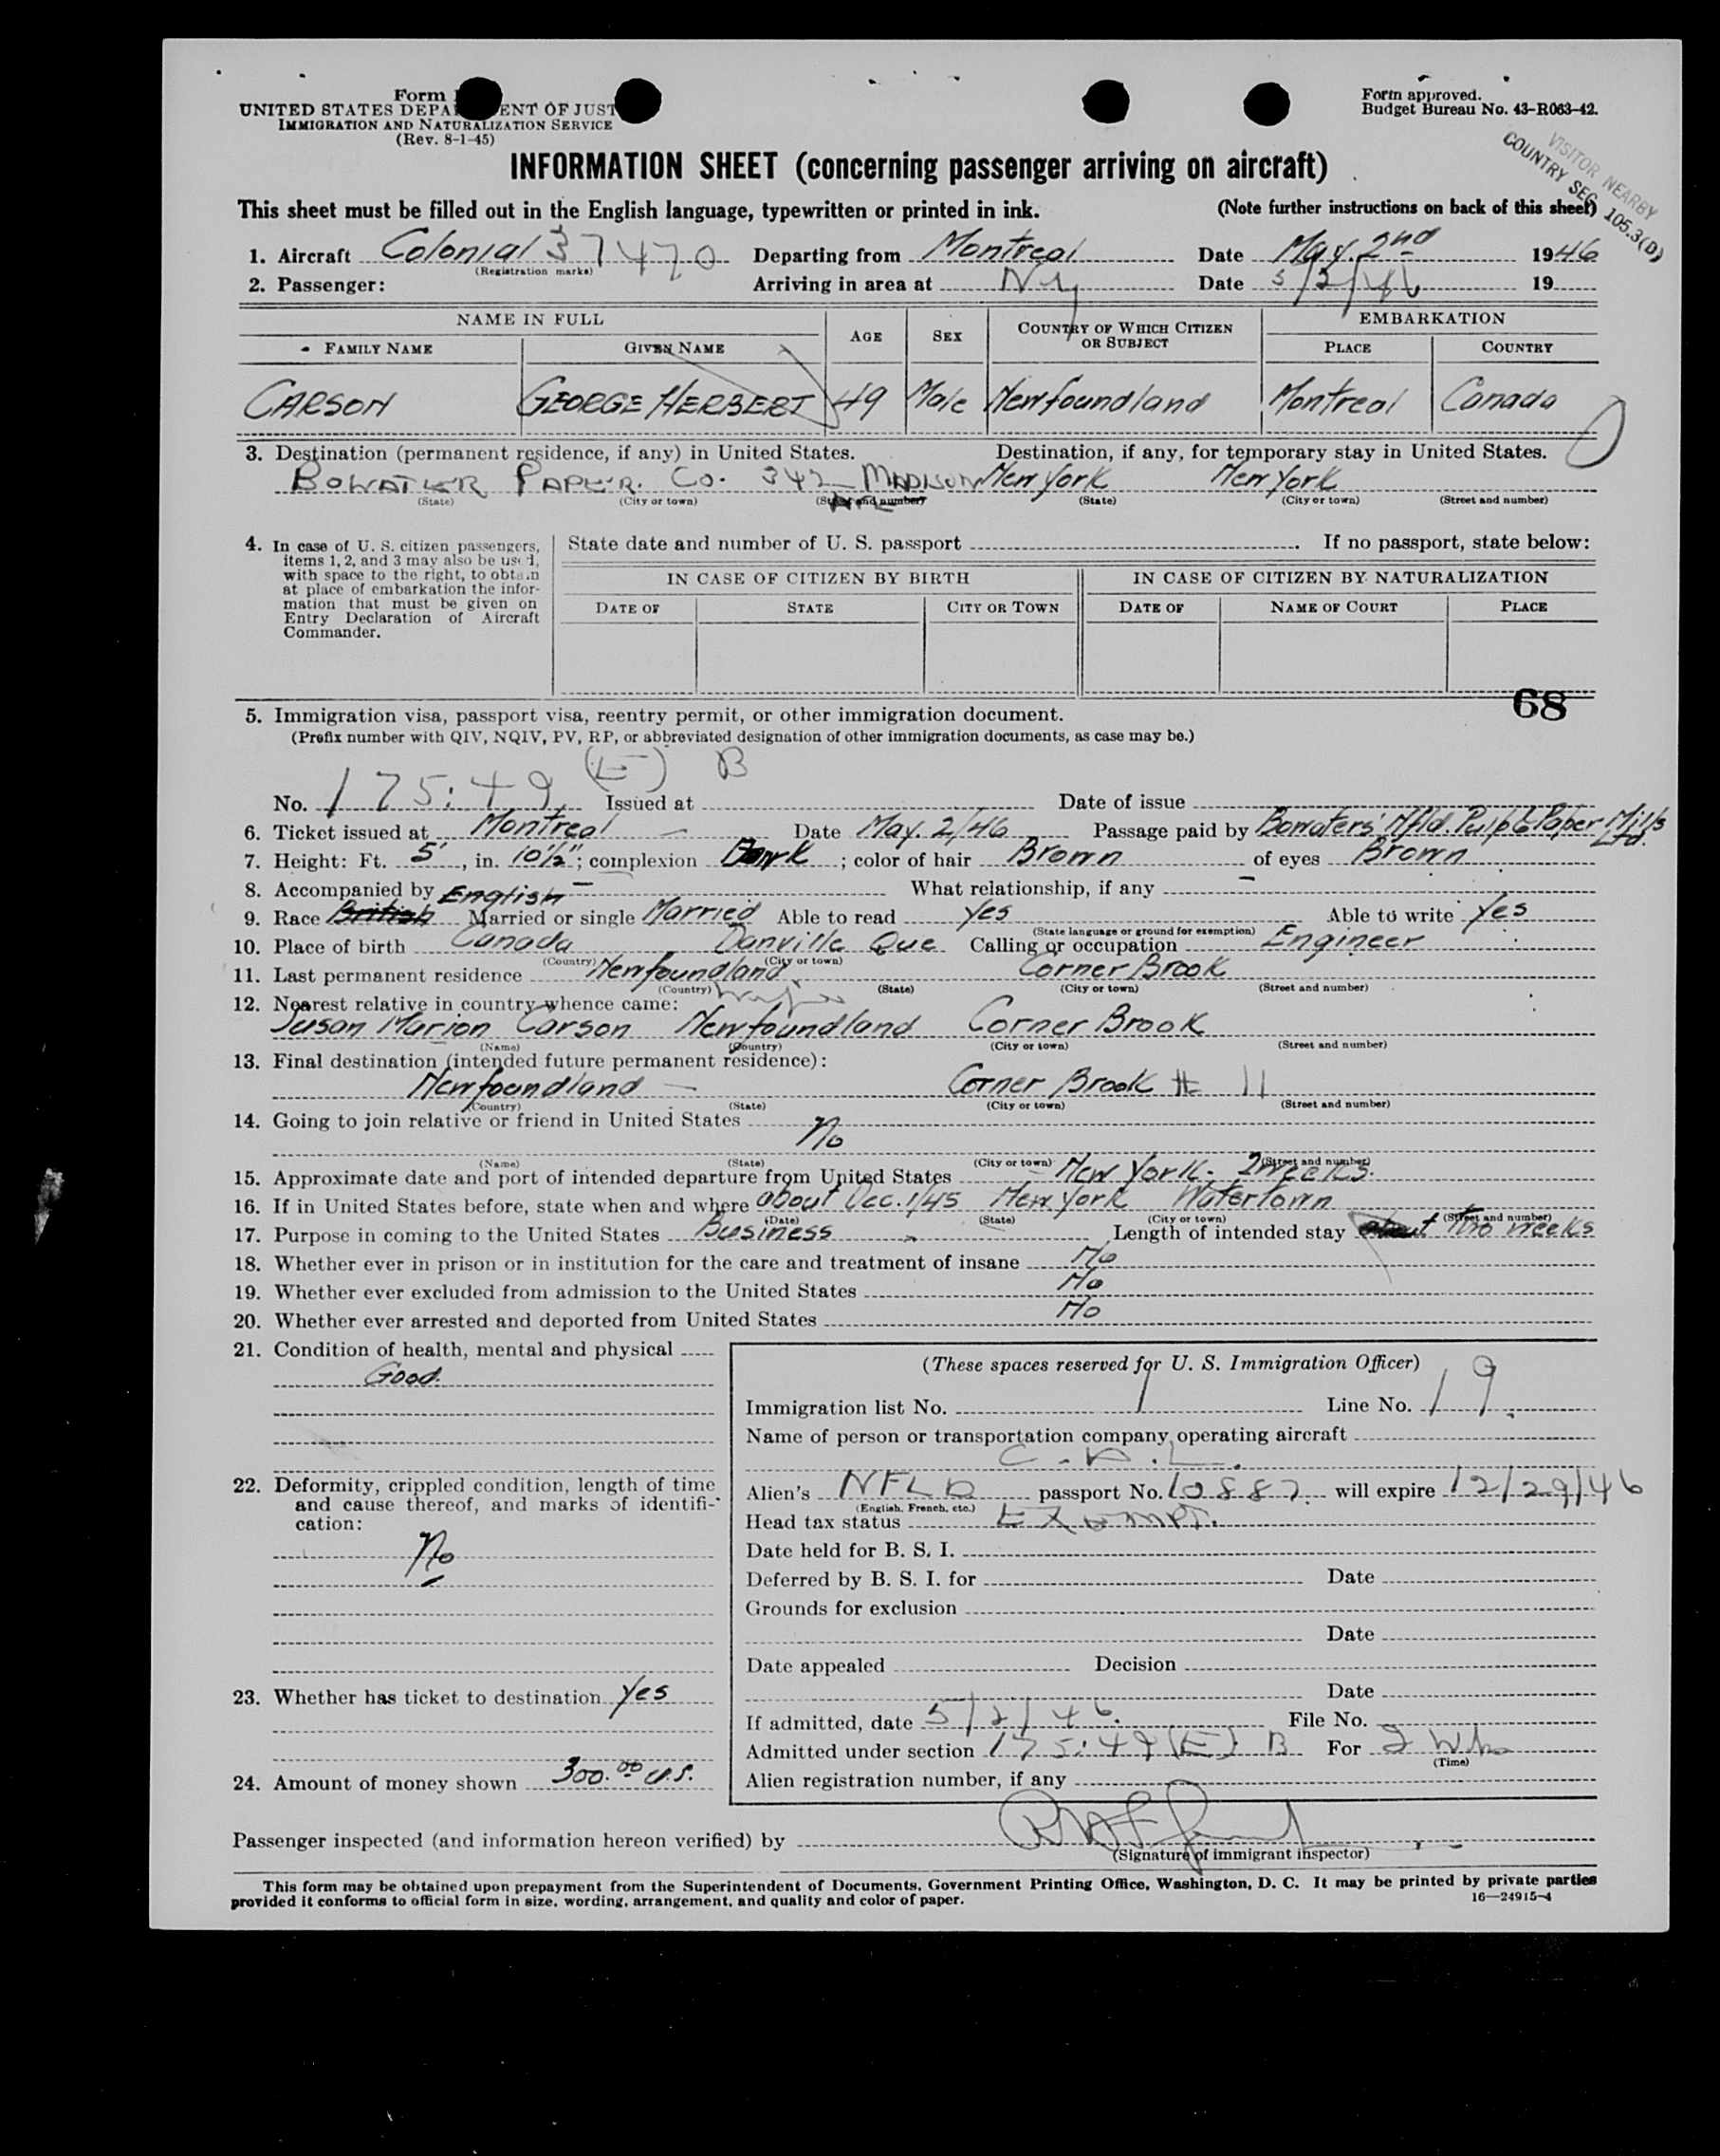 Form
UNITED STATES DEPA ENT OF JUST
IMMIGRATION AND NATURALIZATION SERVICE
(Rev. 8-1-45)
Form approved.
Budget Bureau No. 43-R063-42.
VISITOR NEARBY
COUNTRY SEC 105.3(D)
INFORMATION SHEET (concerning passenger arriving on aircraft)
This sheet must be filled out in the English language, typewritten or printed in ink. (Note further instructions on back of this sheet)
1. Aircraft Colonial 37470 Departing from Montreal Date May. 2nd 1946
(Registration marks)
2. Passenger: Arriving in area at NY Date 5/2/46 19
NAME IN FULL AGE SEX COUNTRY OF WHICH CITIZEN OR SUBJECT EMBARKATION
FAMILY NAME GIVEN NAME PLACE COUNTRY
CARSON GEORGE HERBERT 49 Male Newfoundland Montreal Canada
3. Destination (permanent residence, if any) in United States. Destination, if any, for temporary stay in United States.
BOWATER PAPER. CO. 342 MADISON New York New York
(State) (City or town) (Street and number) (State) (City or town) (Street and number)
4. In case of U. S. citizen passengers, items 1, 2, and 3 may also be used, with space to the right, to obtain at place of embarkation the information that must be given on Entry Declaration of Aircraft Commander.
State date and number of U. S. passport . If no passport, state below:
IN CASE OF CITIZEN BY BIRTH IN CASE OF CITIZEN BY NATURALIZATION
DATE OF STATE CITY OR TOWN DATE OF NAME OF COURT PLACE
68
5. Immigration visa, passport visa, reentry permit, or other immigration document.
(Prefix number with QIV, NQIV, PV, RP, or abbreviated designation of other immigration documents, as case may be.)
No. 175:49 (E) B Issued at Date of issue
6. Ticket issued at Montreal Date May. 2/46 Passage paid by Bowaters' Nfld. Pulp & Paper Mills Ltd.
7. Height: Ft. 5', in. 10½"; complexion Dark; color of hair Brown of eyes Brown
8. Accompanied by – What relationship, if any –
9. Race British English Married or single Married Able to read Yes Able to write Yes
(State language or ground for exemption)
10. Place of birth Canada Danville Que Calling or occupation Engineer
(Country) (City or town)
11. Last permanent residence Newfoundland Corner Brook
(Country) (State) (City or town) (Street and number)
12. Nearest relative in country whence came:
Susan Marion Carson Newfoundland Corner Brook
(Name) (Country) (City or town) (Street and number)
13. Final destination (intended future permanent residence):
Newfoundland – Corner Brook # 11
(Country) (State) (City or town) (Street and number)
14. Going to join relative or friend in United States
No
(Name) (State) (City or town) (Street and number)
15. Approximate date and port of intended departure from United States New York. 2 weeks.
16. If in United States before, state when and where about Dec. 1/45 New York Watertown
(Date) (State) (City or town) (Street and number)
17. Purpose in coming to the United States Business Length of intended stay about two weeks
18. Whether ever in prison or in institution for the care and treatment of insane No
19. Whether ever excluded from admission to the United States No
20. Whether ever arrested and deported from United States No
21. Condition of health, mental and physical
Good.
22. Deformity, crippled condition, length of time and cause thereof, and marks of identification:
No
23. Whether has ticket to destination Yes
24. Amount of money shown 300.00 U.S.
(These spaces reserved for U. S. Immigration Officer)
Immigration list No. 1 Line No. 19.
Name of person or transportation company operating aircraft
C.A.L.
Alien's NFLD passport No. 10887 will expire 12/29/46
(English, French, etc.)
Head tax status EXEMPT.
Date held for B. S. I.
Deferred by B. S. I. for Date
Grounds for exclusion
Date
Date appealed Decision
Date
If admitted, date 5/2/46. File No.
Admitted under section 175:49(E) B For 2 Wks
(Time)
Alien registration number, if any
Passenger inspected (and information hereon verified) by
(Signature of immigrant inspector)
This form may be obtained upon prepayment from the Superintendent of Documents, Government Printing Office, Washington, D. C. It may be printed by private parties
provided it conforms to official form in size, wording, arrangement, and quality and color of paper. 16—24915-4